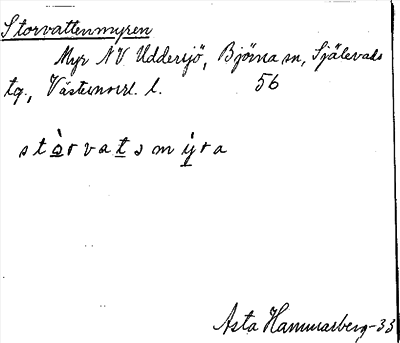 Storvattenmyren
Myr NV Uddersjö, Björna sn, Själevads
tg., Västernorrl. l. 56
stòrvatsmýra
Asta Hammarberg-33